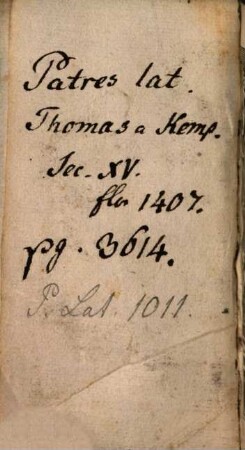 Patres lat.
Thomas a Kemp.
Sec. XV.
flor 1407.
pg. 3614.
P. Lat. 1011.